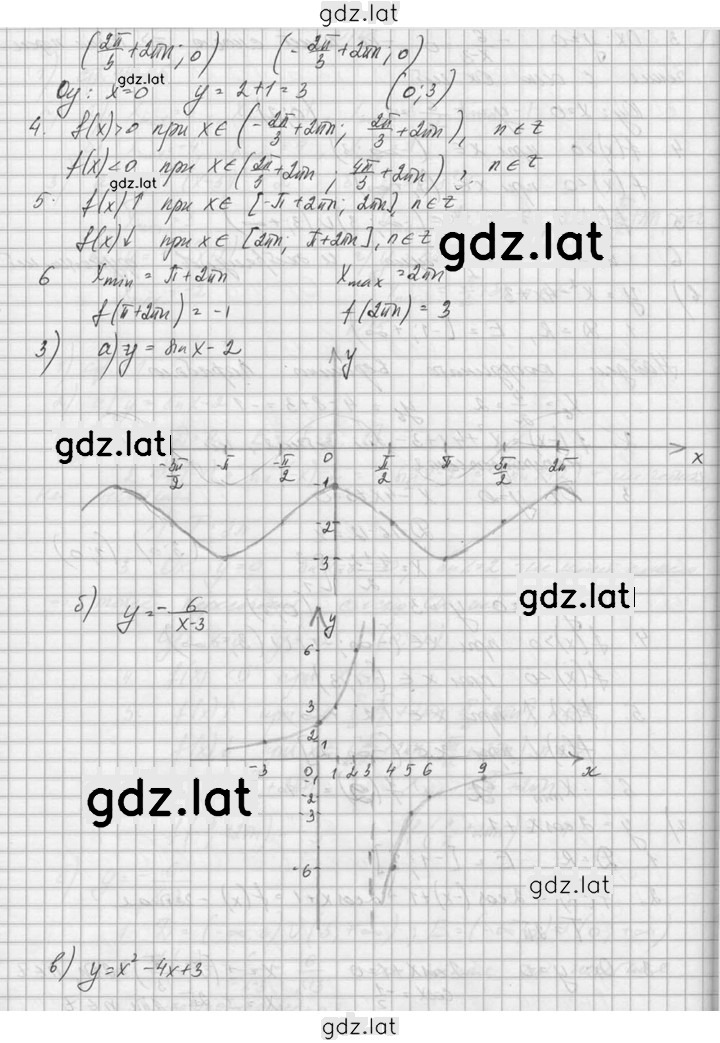 gdz.lat
(2π/3 + 2πn; 0) (-2π/3 + 2πn; 0)
gdz.lat
Oy: x=0 y = 2+1 = 3 (0; 3)
4. f(x)>0 при x∈ (-2π/3 + 2πn; 2π/3 + 2πn), n∈Z
f(x)<0 при x∈ (2π/3 + 2πn; 4π/3 + 2πn), n∈Z
gdz.lat
5. f(x)↑ при x∈ [-π+2πn; 2πn], n∈Z
f(x)↓ при x∈ [2πn; π+2πn], n∈Z
gdz.lat
6 Xmin = π+2πn Xmax = 2πn
f(π+2πn) = -1 f(2πn) = 3
3) а) y = sin x - 2
y
gdz.lat
-3π/2 -π -π/2 0 π/2 π 3π/2 2π x
-1
-2
-3
gdz.lat
б) y = - 6/(x-3)
y
6
3
2
1
-3 0 1 2 3 4 5 6 9 x
-1
-2
-3
gdz.lat
-6
gdz.lat
в) y = x² - 4x + 3
gdz.lat